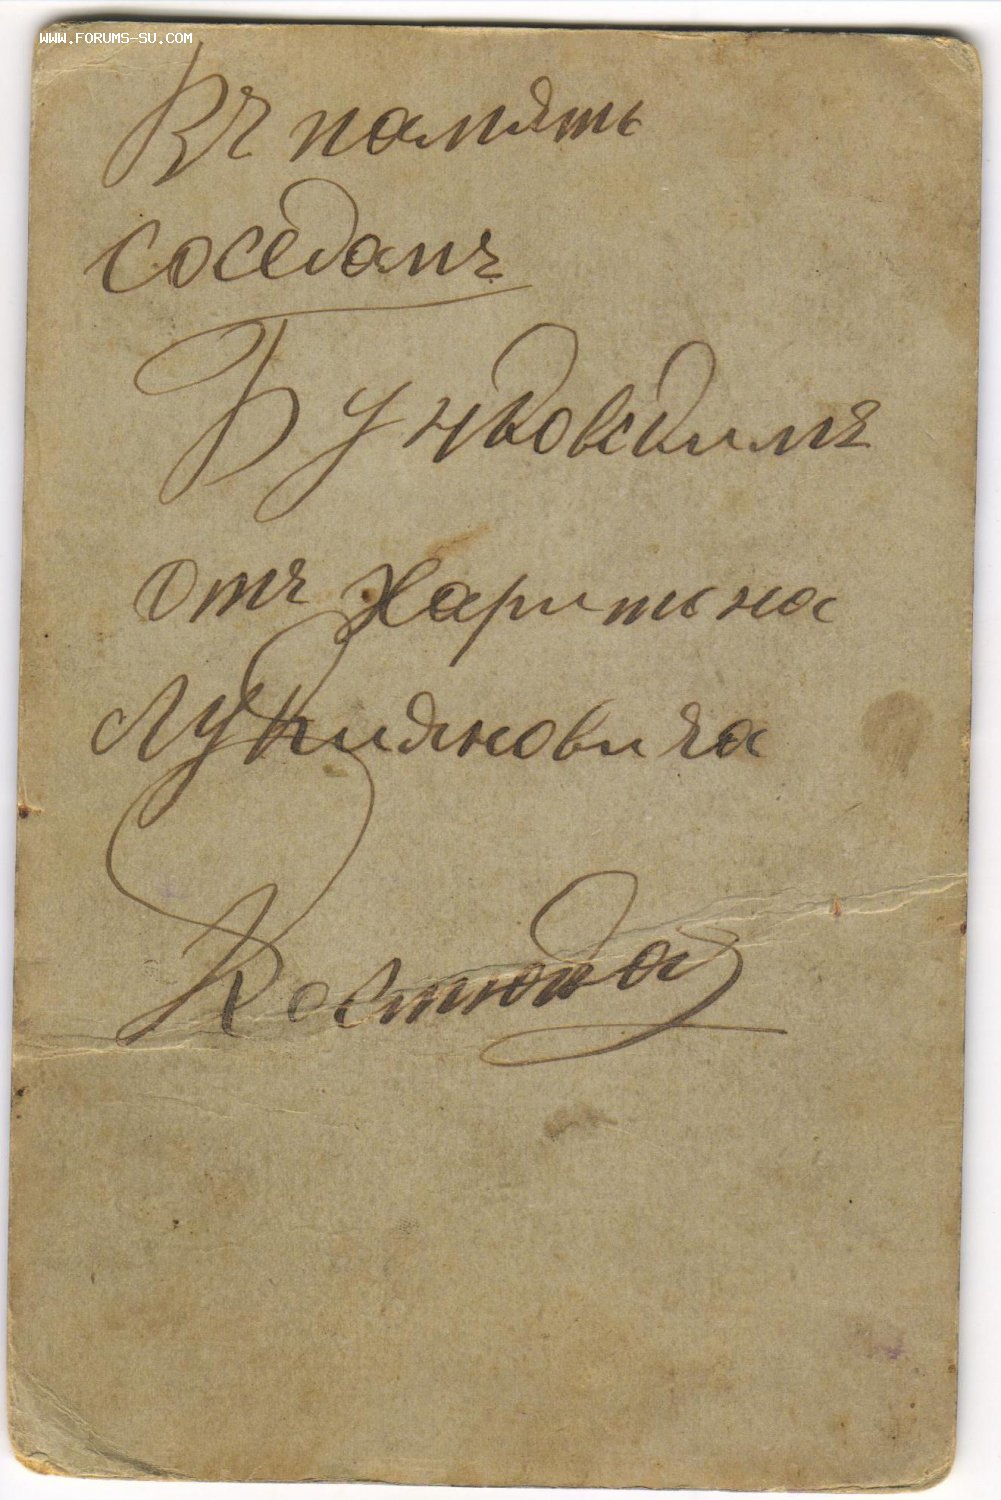 WWW.FORUMS-SU.COM
Въ память
соседамъ
Буньковскимъ
отъ Харитона
Лукияновича
Костюка